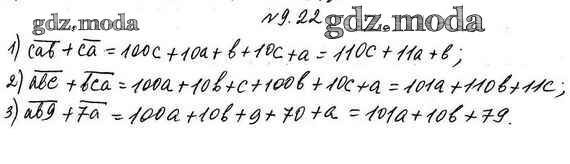 gdz.moda №9.22 gdz.moda
1) c̅a̅b̅ + c̅a̅ = 100c + 10a + b + 10c + a = 110c + 11a + b;
2) a̅b̅c̅ + b̅c̅a̅ = 100a + 10b + c + 100b + 10c + a = 101a + 110b + 11c;
3) a̅b̅9̅ + 7̅a̅ = 100a + 10b + 9 + 70 + a = 101a + 10b + 79.